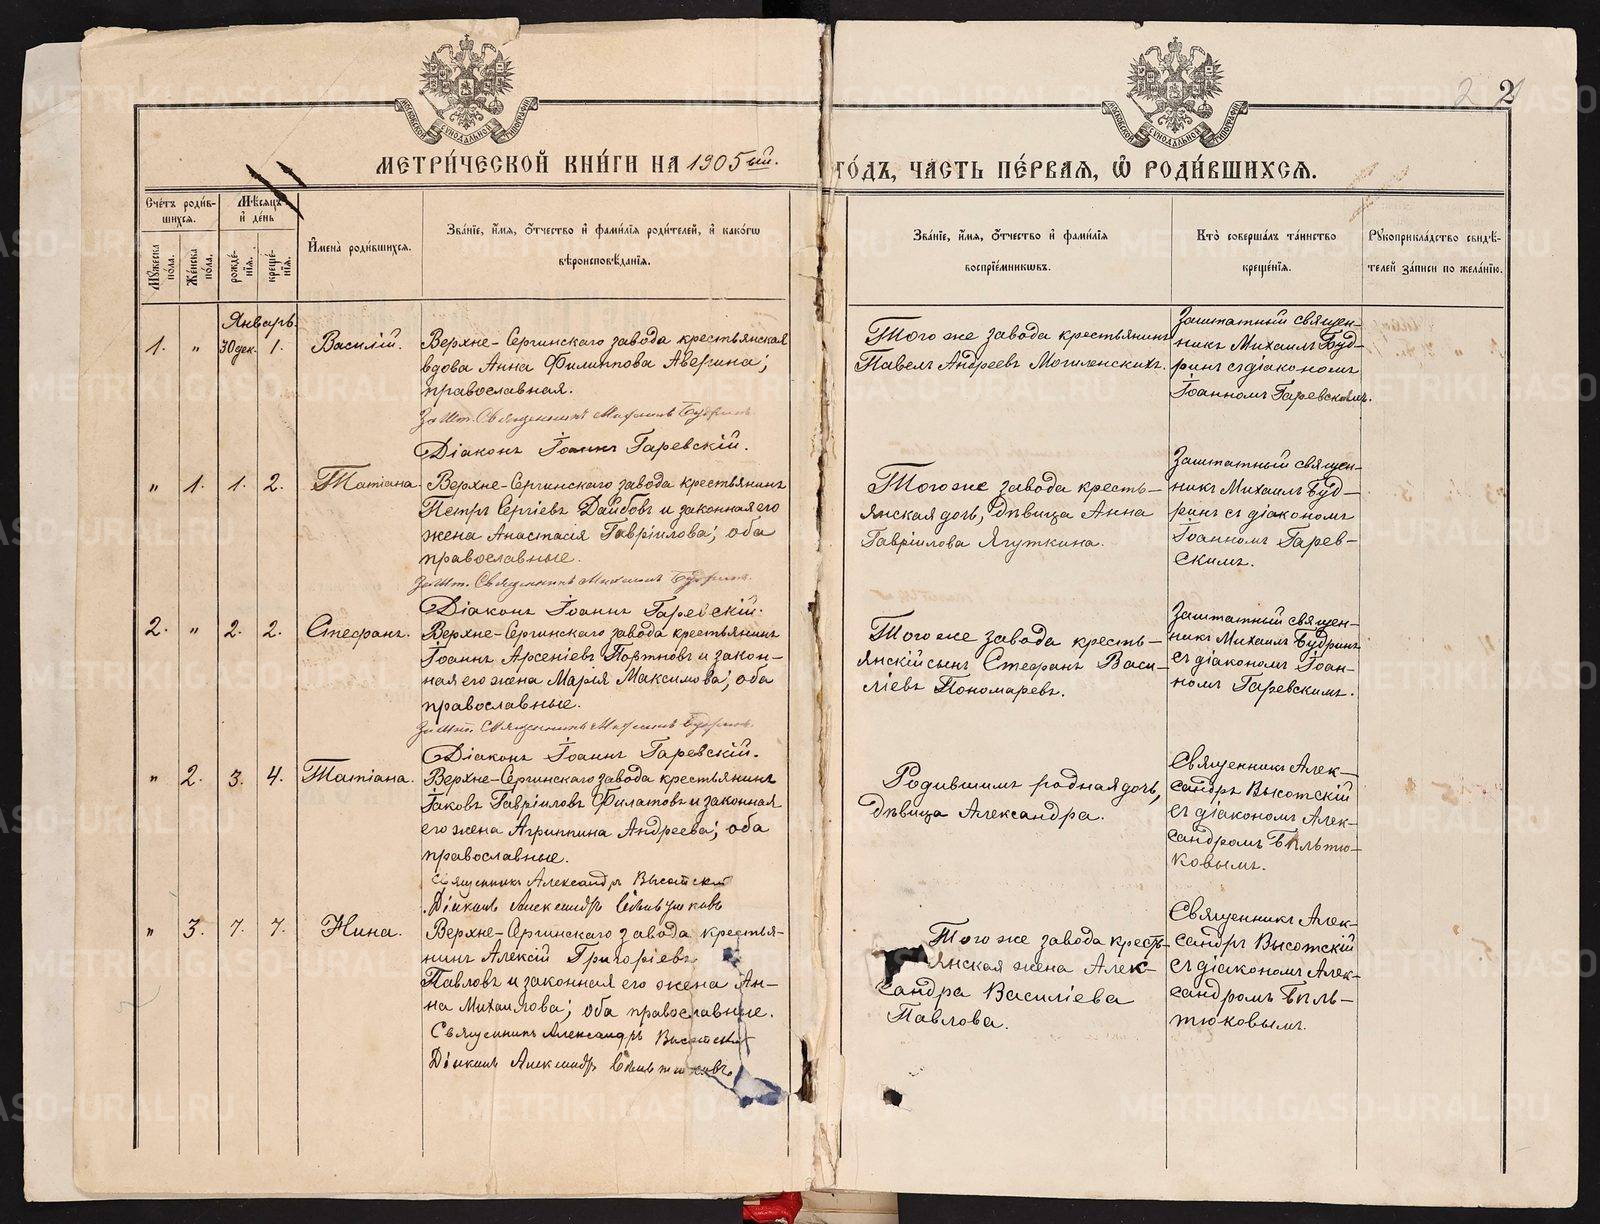 МОСКОВСКОЙ СѴНОДАЛЬНОЙ ТИПОГРАФІИ
МЕТРИ́ЧЕСКОЙ КНИ́ГИ НА 1905ый.
Сче́тъ роди́в-
шихся.
Мѣ́сяцъ
и҆ де́нь
Мꙋ́жеска
по́ла.
Же́нска
по́ла.
рожде́-
нія.
креще́-
нія.
И҆мена̀ роди́вшихся.
Зва́ніе, и҆́мя, ѻ҆́тчество и҆ фами́лія роди́телей, и҆ како́гѡ
вѣроисповѣ́данія.
Январь.
1. „ 30 дек. 1. Василій.
Верхне-Сергинскаго завода крестьянская
вдова Анна Филиппова Аверина;
православная.
Зашт. Священникъ Михаилъ Будринъ
Діаконъ Іоаннъ Гаревскій.
„ 1. 1. 2. Татіана.
Верхне-Сергинскаго завода крестьянинъ
Петръ Сергіевъ Дайбовъ и законная его
жена Анастасія Гавріилова; оба
православные.
Зашт. Священникъ Михаилъ Будринъ.
Діаконъ Іоаннъ Гаревскій.
2. „ 2. 2. Стефанъ.
Верхне-Сергинскаго завода крестьянинъ
Іоаннъ Арсеніевъ Портновъ и закон-
ная его жена Марія Максимова; оба
православные.
Зашт. Священникъ Михаилъ Будринъ.
Діаконъ Іоаннъ Гаревскій.
„ 2. 3. 4. Татіана.
Верхне-Сергинскаго завода крестьянинъ
Іаковъ Гавріиловъ Филатовъ и законная
его жена Агриппина Андреева; оба
православные.
Священникъ Александръ Высотскій
Діаконъ Александръ Бѣльтюковъ
„ 3. 7. 7. Нина.
Верхне-Сергинскаго завода крестья-
нинъ Алексій Григоріевъ
Павловъ и законная его жена Ан-
на Михаилова; оба православные.
Священникъ Александръ Высотскій
Діаконъ Александръ Бѣльтюковъ
МОСКОВСКОЙ СѴНОДАЛЬНОЙ ТИПОГРАФІИ
2
2
ГО́ДЪ, ЧАСТЬ ПЕ́РВАЯ, Ѽ РОДИ́ВШИХСЯ.
Зва́ніе, и҆́мя, ѻ҆́тчество и҆ фами́лія
воспріе́мникѡвъ.
Кто̀ соверша́лъ та́инство
креще́нія.
Рꙋкоприкла́дство свидѣ́-
телей за́писи по жела́нію.
Того же завода крестьянинъ
Павелъ Андреевъ Могиленскихъ.
Заштатный священ-
никъ Михаилъ Буд-
ринъ съ діакономъ
Іоанномъ Гаревскимъ.
Того же завода кресть-
янская дочь, дѣвица Анна
Гавріилова Ягуткина.
Заштатный священ-
никъ Михаилъ Буд-
ринъ съ діакономъ
Іоанномъ Гарев-
скимъ.
Того же завода кресть-
янскій сынъ Стефанъ Васи-
ліевъ Пономаревъ.
Заштатный священ-
никъ Михаилъ Будринъ
съ діакономъ Іоан-
номъ Гаревскимъ.
Родившимъ родная дочь,
дѣвица Александра.
Священникъ Алек-
сандръ Высотскій
съ діакономъ Алек-
сандромъ Бѣльтю-
ковымъ.
Того же завода кресть-
янская жена Алек-
сандра Василіева
Павлова.
Священникъ Алек-
сандръ Высотскій
съ діакономъ Алек-
сандромъ Бѣль-
тюковымъ.
METRIKI.GASO-URAL.RU